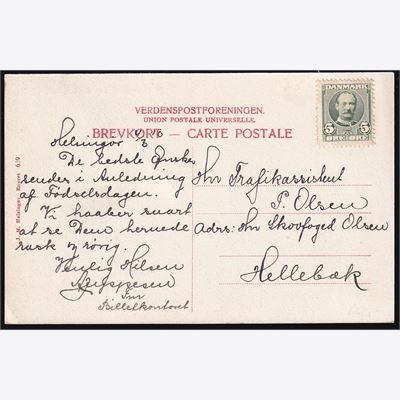 VERDENSPOSTFORENINGEN.
UNION POSTALE UNIVERSELLE.
BREVKORT — CARTE POSTALE
DANMARK
5 5
ØRE ØRE
Helsingør
De bedste Ønsker
sendes i Anledning
af Fødselsdagen.
Vi haaber snart
at se Dem hernede
rask og rørig.
Venlig Hilsen
Jeppesen
Billetkontoret
Hr Trafikassistent
P. Olsen
Adrs: Hr Skovfoged Olsen
Hellebæk
Helsingør. Eneret 619